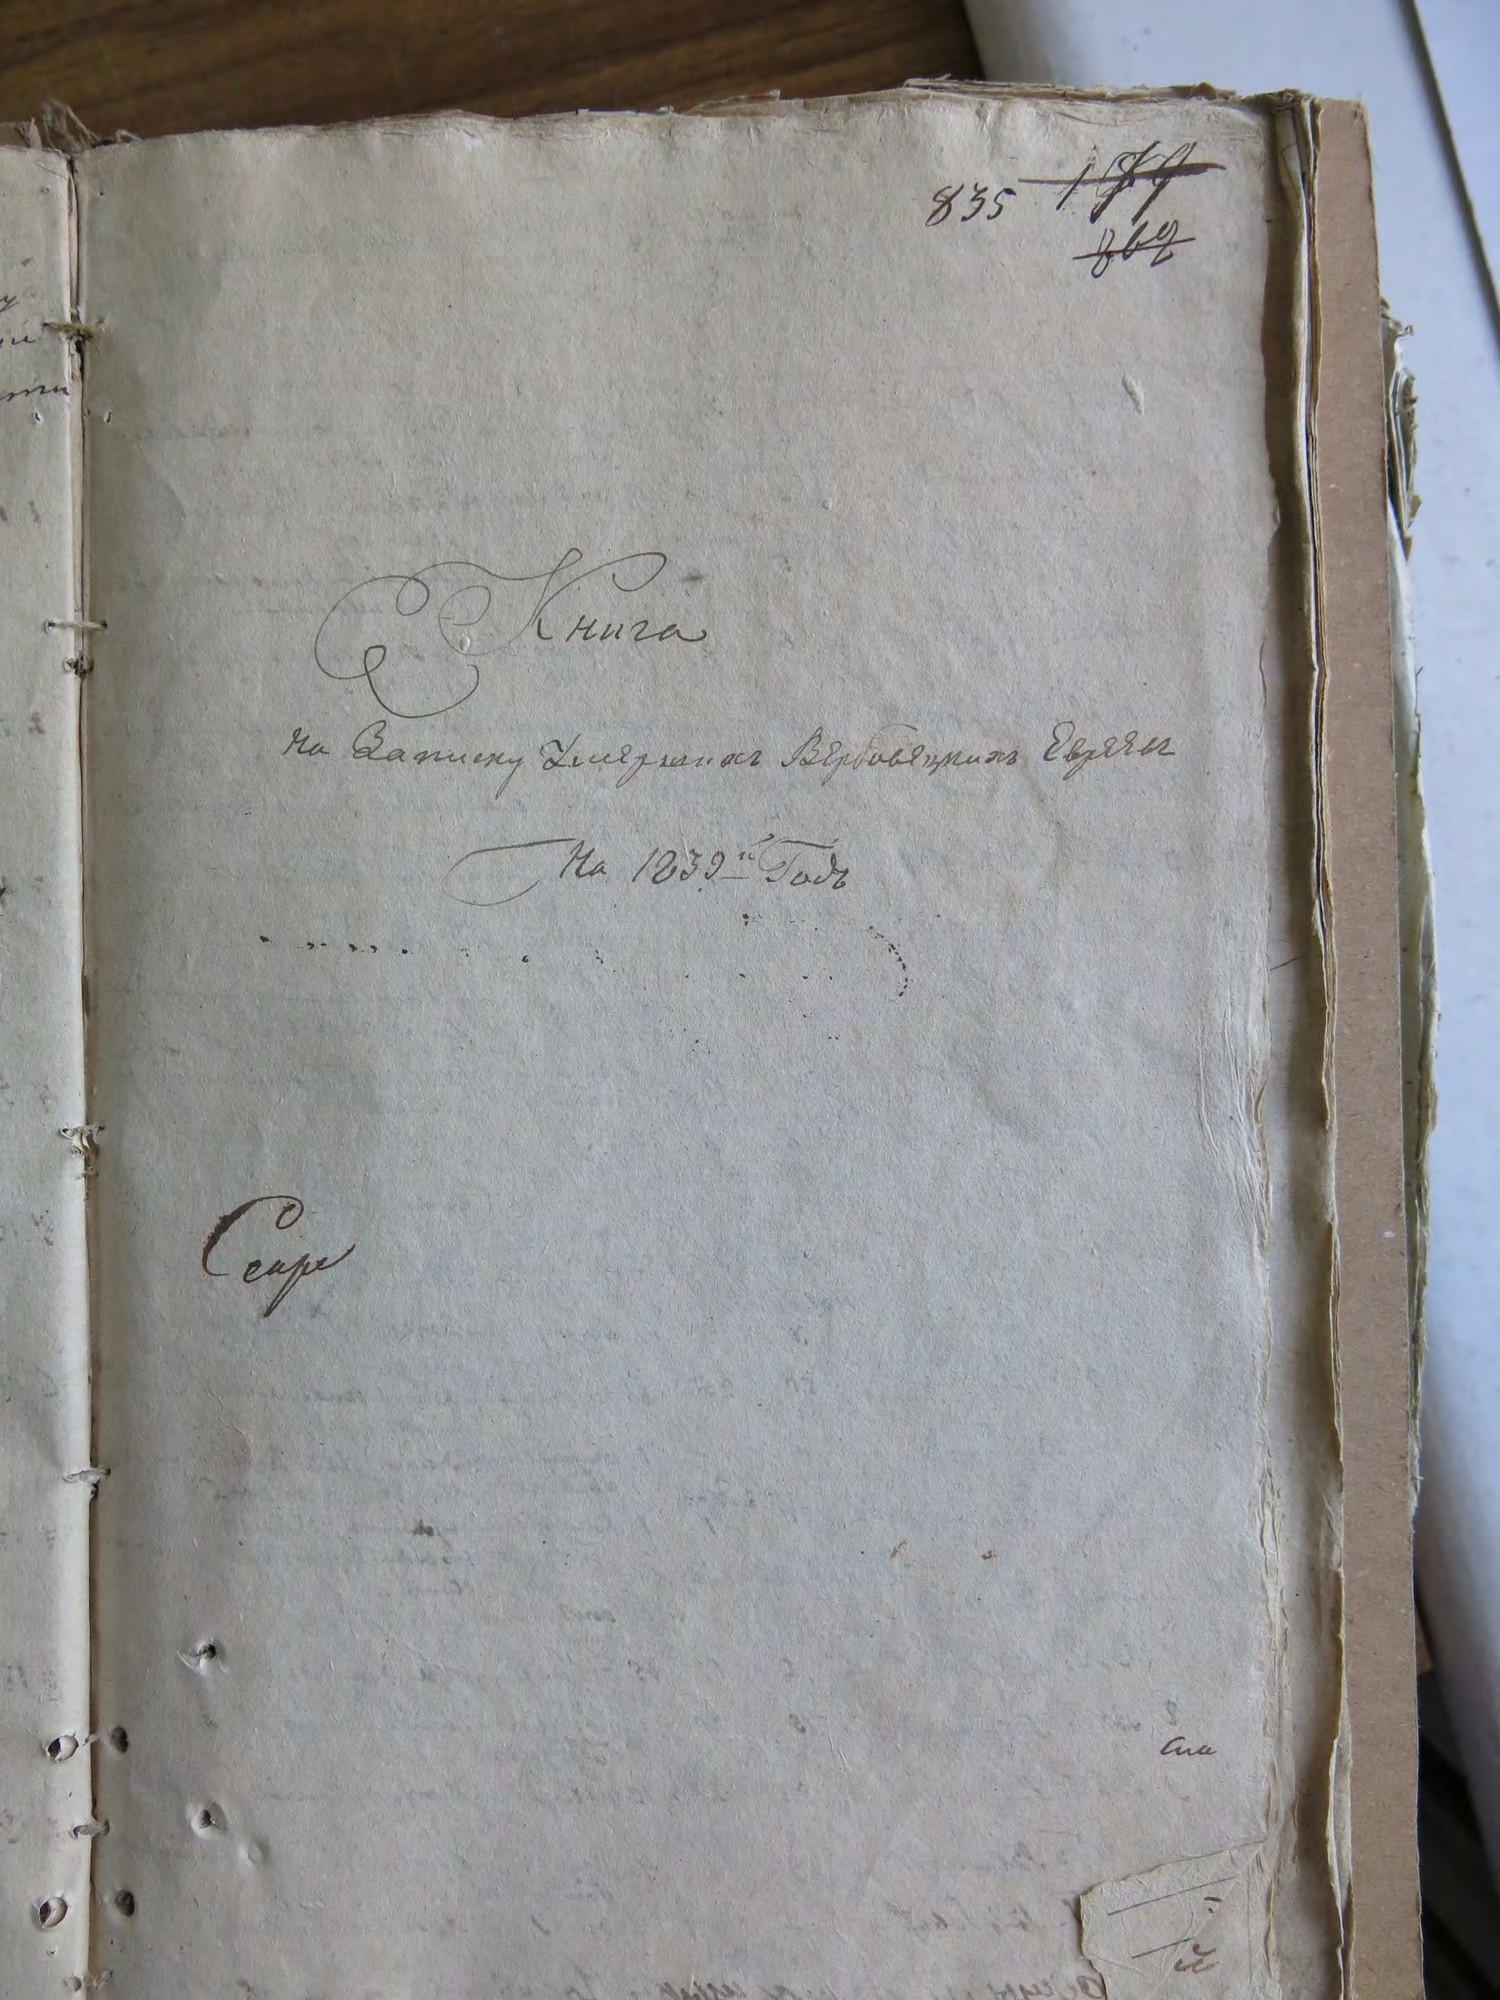 835 179
869
Книга
На Записку Умершихъ Вербовецкихъ Евреевъ
На 1839й Годъ
Секре